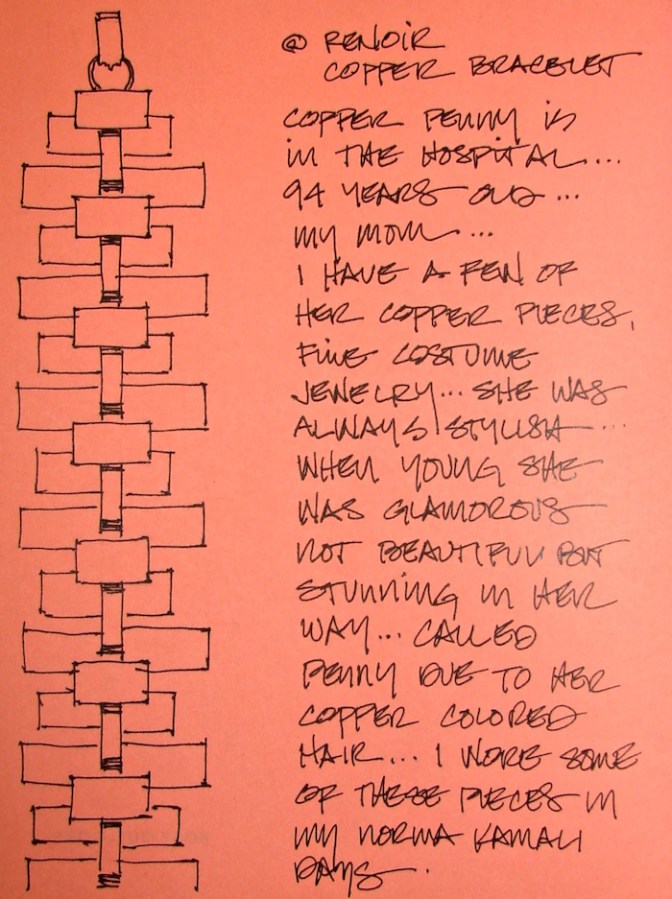 @ RENOIR
COPPER BRACELET
COPPER PENNY IS
IN THE HOSPITAL....
94 YEARS OLD...
MY MOM...
I HAVE A FEW OF
HER COPPER PIECES,
FINE COSTUME
JEWELRY... SHE WAS
ALWAYS STYLISH...
WHEN YOUNG SHE
WAS GLAMOROUS
NOT BEAUTIFUL BUT
STUNNING IN HER
WAY... CALLED
PENNY DUE TO HER
COPPER COLORED
HAIR... I WORE SOME
OF THESE PIECES IN
MY NORMA KAMALI
DAYS.